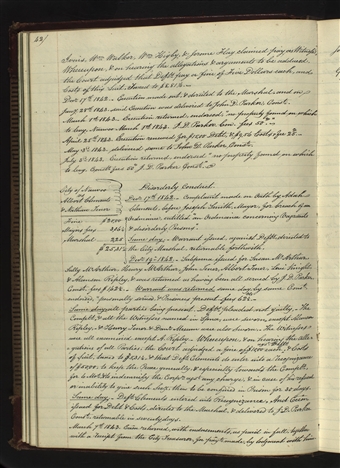 Jones, Wm Walker, Wm Higby, & James Flay claimed pay as Witnesses.
Whereupon, & on hearing the allegations & arguments to be adduced,
the Court adjudged that Defts pay a fine of Five Dollars each, and
Costs of this Suit, taxed to
Decr 17th 1842. Execution made out & devoted to the Marshal, and on
Jany 28th 1843. said Execution was delivered to John D. Parker, Const.
March 8th 1843. Execution returned, endorsed "no property found on which
to levy, Nauvoo March 8th 1843. J. D. Parker Con. fees 50
April 28th 1843. Execution renewed for Debt, & Costs
May 3d 1843. delivered same to John D. Parker, Const.
July 3d 1843. Execution returned, endorsed "no property found on which
to levy. Const. fees 50 J. D. Parker Const."
City of Nauvoo
vs
Albert Clements
& Nathan
Fine $20.00
Mayors fees
Marshal
Disorderly Conduct.
Decr 17th 1842. Complaint made on Oath by Adah
Clements, before Joseph Smith, Mayor, for breach of an
Ordinance, entitled "an Ordinance concerning Vagrants
& disorderly Persons."
Same day. Warrant issued against Defts, directed to
the City Marshal returnable forthwith.
Decr 19th 1842. Subpoena issued for Susan McArthur,
Sally McArthur, Henry McArthur, John Jones, Albert Jones, Levi Knight,
& Alanson Ripley & was returned as having been all served by J. D. Parker
Const. fees Warrant was returned same day, by same Const.
endorsed "personally served & Prisoners present fees
Same day, parties being present, Defts pleaded not guilty. The
Complt, & all the Witnesses named in Subpa were sworn, except Alanson
Ripley. & Henry Jones & Daniel were also sworn. The Witnesses
were all examined, except A. Ripley. Whereupon, on hearing the alle-
gations of both Parties, the Court adjudged a fine of each, & Costs
of Suit, taxed to & that Deft Clements do enter into a Recognizance
of to keep the Peace generally, & especially towards the Complt,
for 6 Mos. & to indemnify the Complt agst any charge, & in case of his refusal
or inability to give such Secy, then to be confined in Prison for 20 days.
Same day, Deft Clements entered into Recognizance. And Execn
issued for Debt & Costs, directed to the Marshal, & delivered to J. D. Parker
Const. returnable in seventy days.
March 7th 1843. Execn returned, with endorsements, as found on file, together
with a receipt from the City Treasurer, for paymt made, by Judgment with him